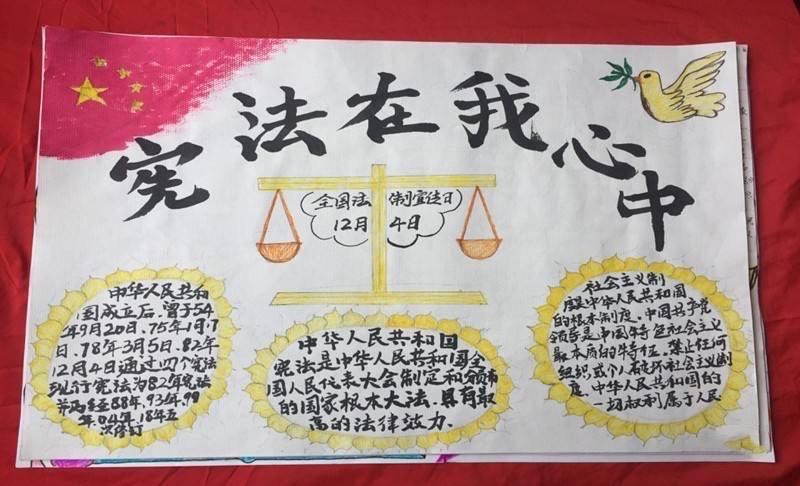 宪法在我心中
全国法制宣传日
12月4日
中华人民共和
国成立后,曾于54
年9月20日、75年1月17
日、78年3月5日、82年
12月4日通过四个宪法
现行宪法为82年宪法
并历经88年、93年、99
年、04年、18年五
次修订
中华人民共和国
宪法是中华人民共和国全
国人民代表大会制定和颁布
的国家根本大法.具有最
高的法律效力.
社会主义制
度是中华人民共和国
的根本制度。中国共产党
领导是中国特色社会主义
最本质的特征。禁止任何
组织或个人破坏社会主义制
度、中华人民共和国的
一切权利属于人民